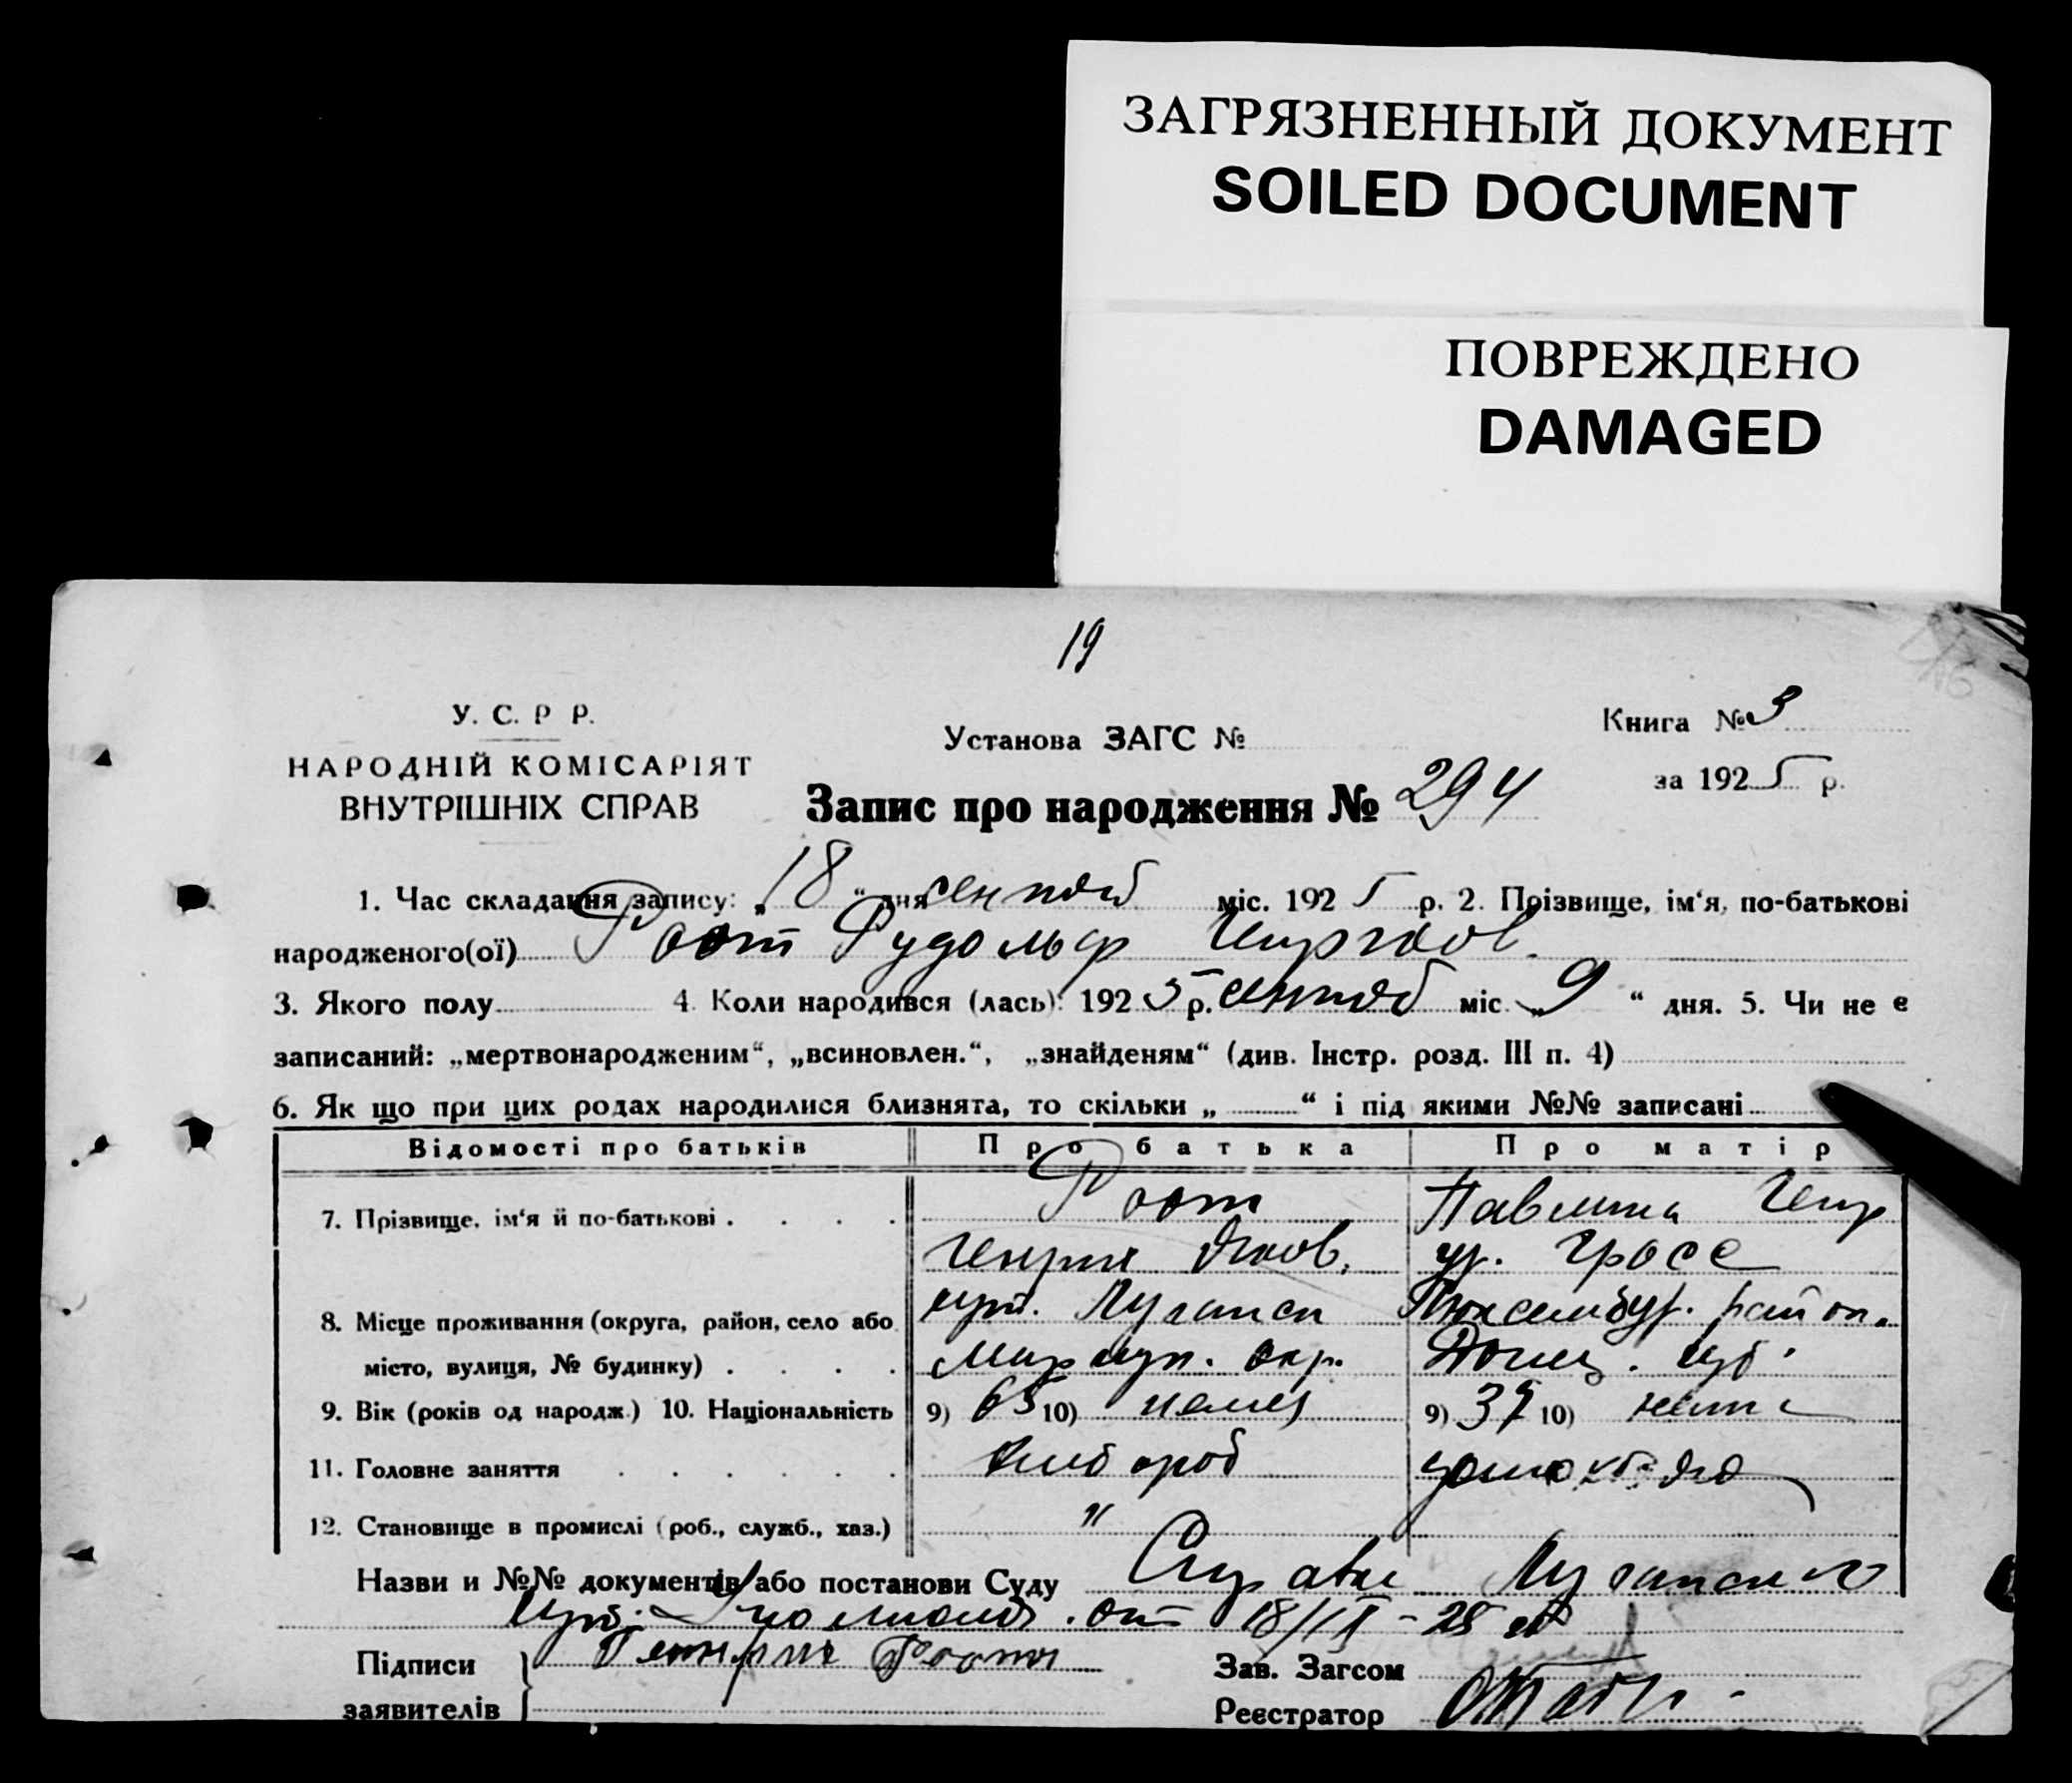 ЗАГРЯЗНЕННЫЙ ДОКУМЕНТ
SOILED DOCUMENT
ПОВРЕЖДЕНО
DAMAGED
19
У. С. Р Р.
НАРОДНІЙ КОМІСАРІЯТ
ВНУТРІШНІХ СПРАВ
Установа ЗАГС №
Книга № 3
за 1925 р.
Запис про народження № 294
1. Час складання запису: „18“ дня сентяб міс. 1925 р. 2. Прізвище, ім‘я, по-батькові
народженого(ої) Роот Рудольф
3. Якого полу 4. Коли народився (лась): 1925 р. сентяб міс. „9“ дня. 5. Чи не є
записаний: „мертвонародженим“, „всиновлен.“, „знайденям“ (див. Інстр. розд. III п. 4)
6. Як що при цих родах народилися близнята, то скільки „ “ і під якими №№ записані
Відомості про батьків Про батька Про матір
7. Прізвище, ім‘я й по-батькові . . . . Роот Павлина Генр
Генрих Яков. ур. Гросс
8. Місце проживання (округа, район, село або Луганск Люксембур. район.
місто, вулиця, № будинку) . . . . Мариуп. окр. Донец. губ.
9. Вік (років од народж.) 10. Національність 9) 65 10) немец 9) 37 10) немк
11. Головне заняття . . . . . . хлебороб домохоз
12. Становище в промислі (роб., служб., хаз.) "
Назви и №№ документів або постанови Суду Справка Луганского
от 18/IX - 25
Підписи
заявителів
Генрих Роот
Зав. Загсом
Реєстратор